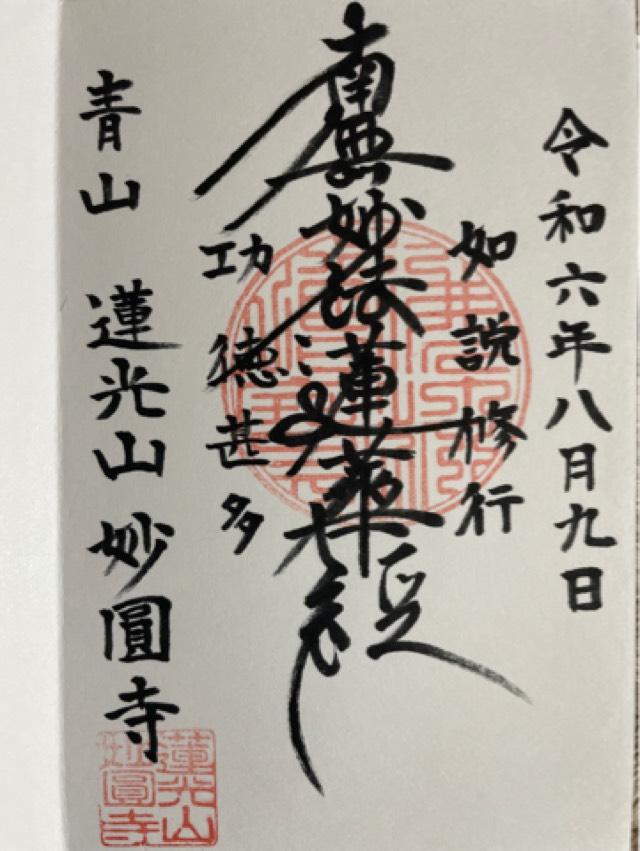 令和六年八月九日
如説修行
南無妙法蓮華経
功徳甚多
青山 蓮光山 妙圓寺
蓮光山
妙圓寺